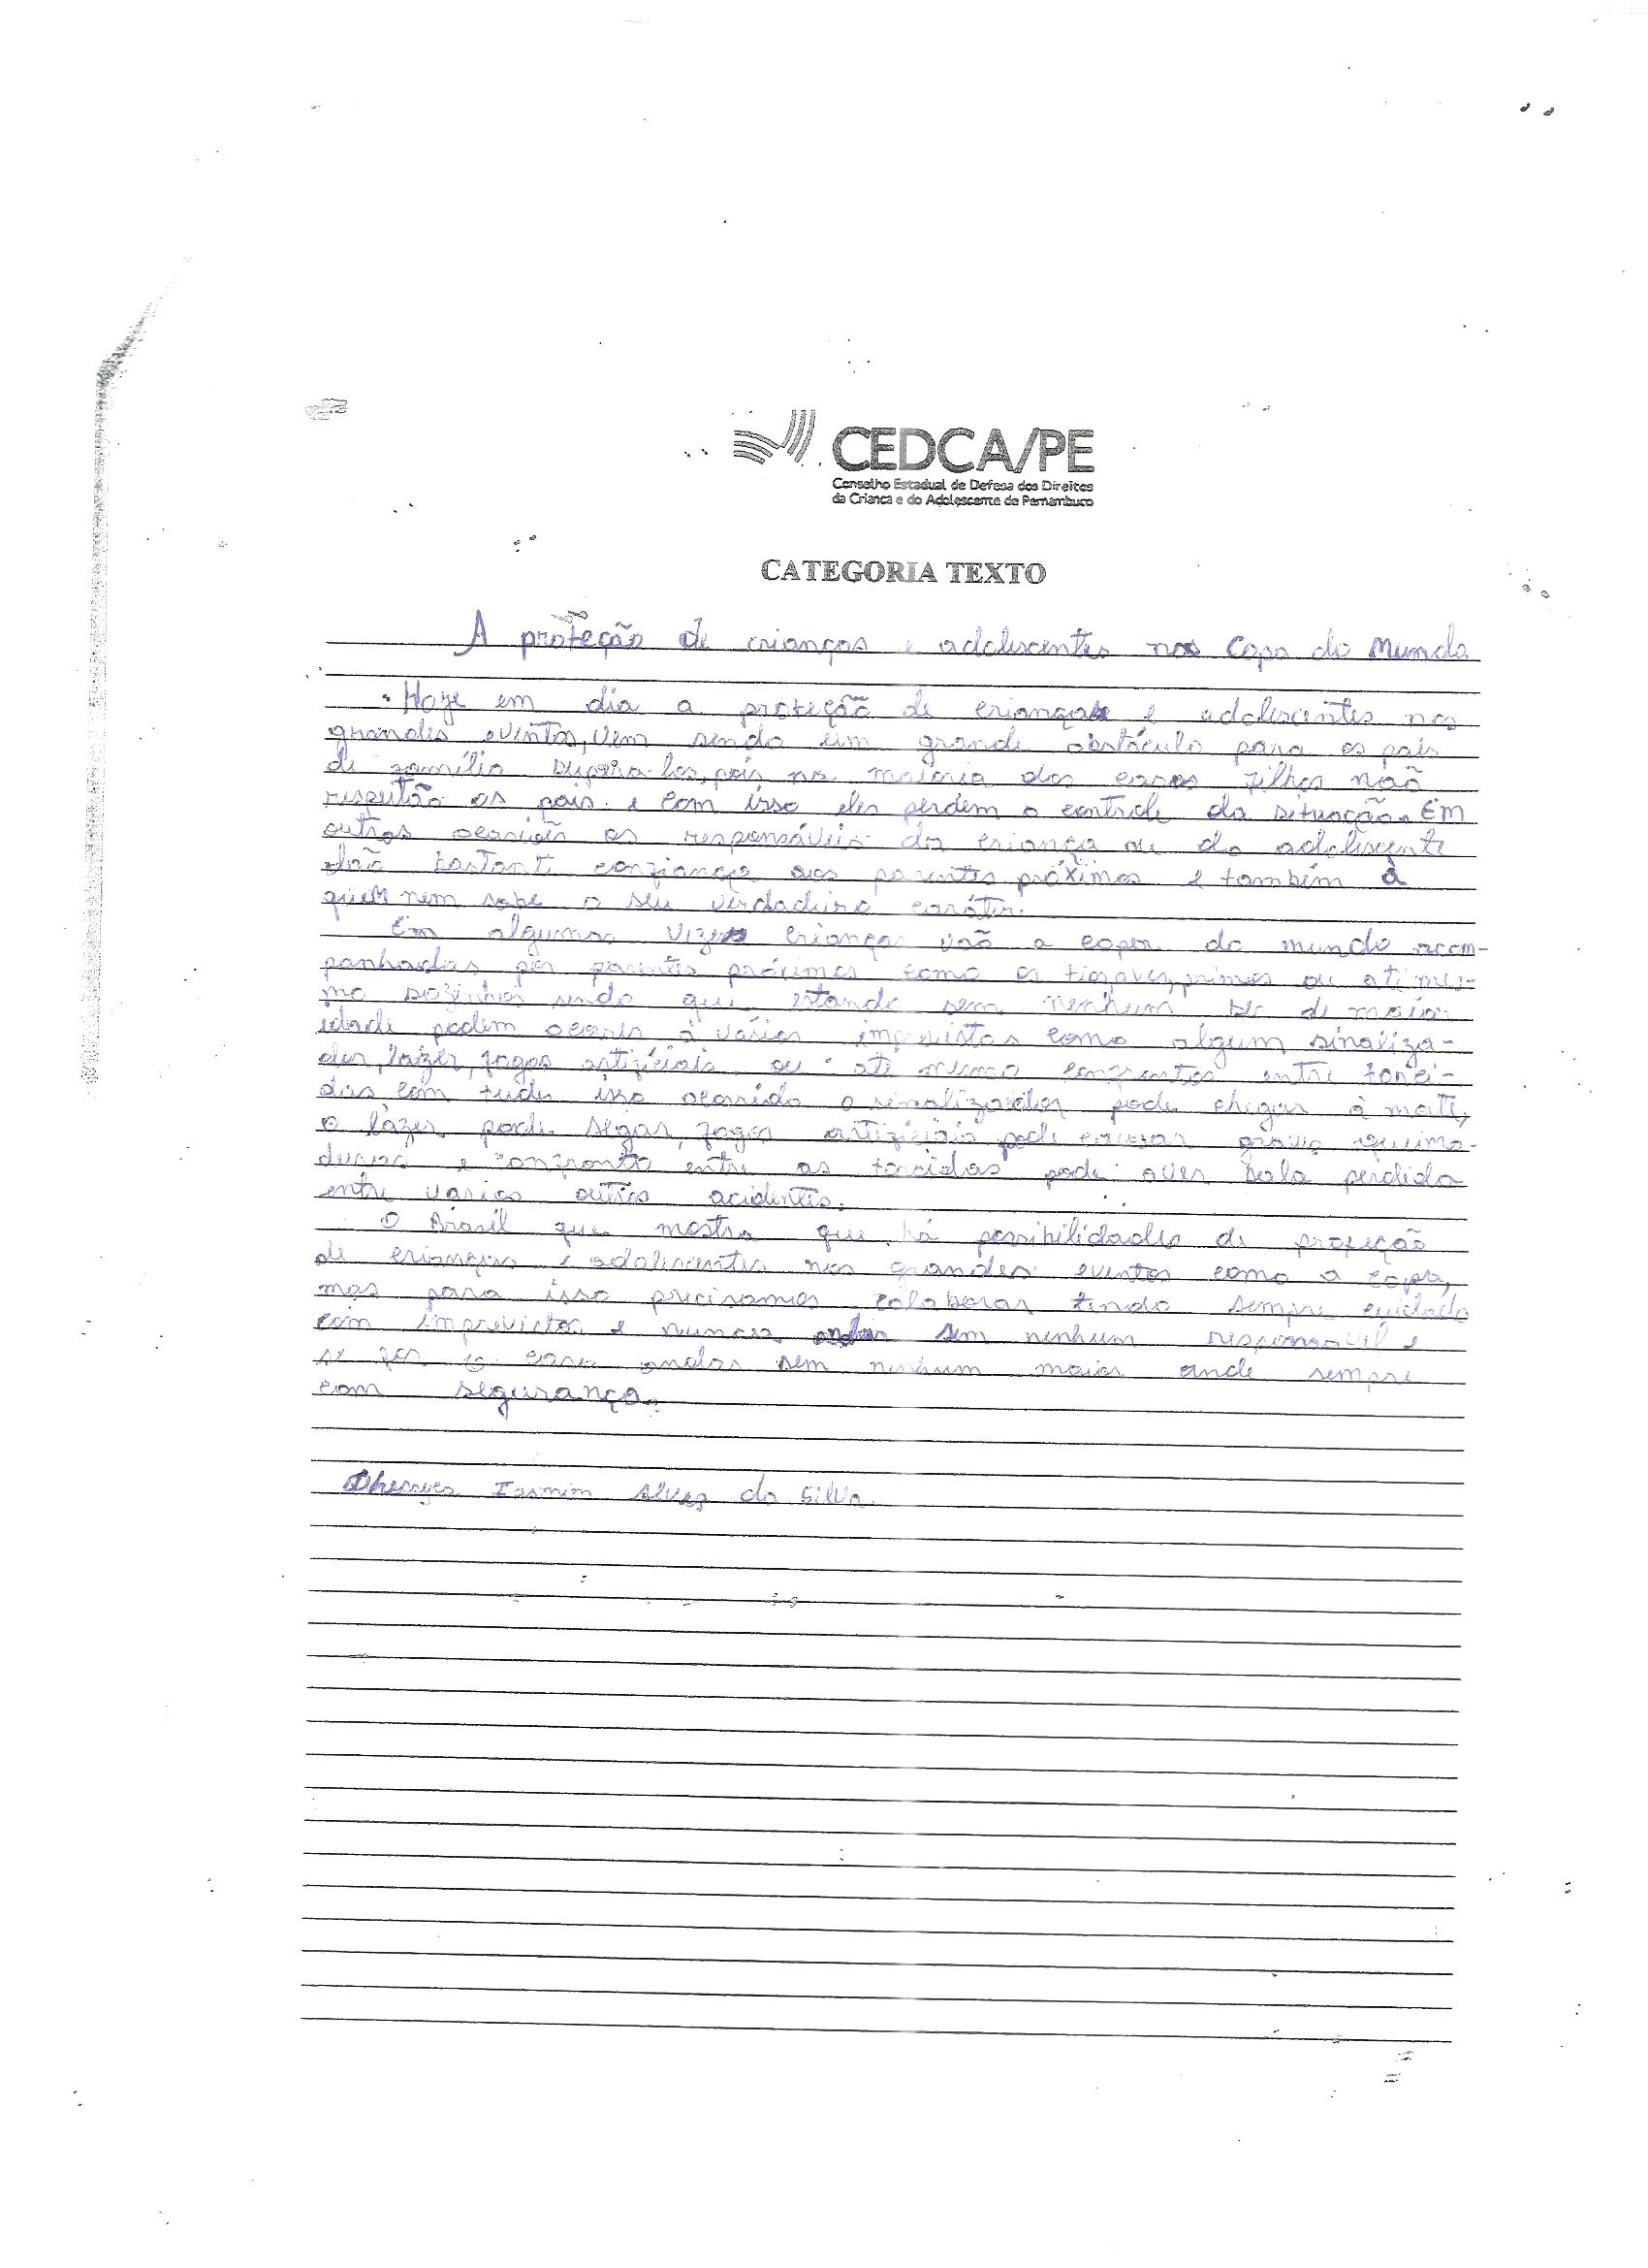 CEDCA/PE
Conselho Estadual de Defesa dos Direitos
da Criança e do Adolescente de Pernambuco
CATEGORIA TEXTO
A proteção de crianças e adolescentes na Copa do Mundo
Hoje em dia a proteção de crianças e adolescentes nos
grandes eventos, vem sendo um grande obstáculo para os pais
de família supera-los, pois na maioria dos casos filhos naõ
respeitão os pais e com isso eles perdem o controle da situação. Em
outras ocasiões os responsáveis da criança ou do adolescente
dão bastante confiança aos parentes próximos e também à
quem nem sabe o seu verdadeiro caráter.
Em algumas vizes crianças vaõ a copa do mundo acom-
panhadas por parentes próximos como os tios, avos, primos ou até mes-
mo sozinhos sendo que estando sem nenhum de maior
idade podem ocorrer à vários imprevistos como algum sinaliza-
dor, lazer, fogos artificiais ou até mesmo confrontos entre torci-
das, com tudo isso ocorrido o sinalizador pode chegar à mate,
o lazer pode segar, fogos artificiais pode causar graves queima-
duras e confronto entre as torcidas pode aver bala perdida
entre varios outros acidentes.
O Brasil que mostra que há possibilidades de proteção
de crianças e adolescentes nos grandes eventos como a copa,
mas para isso precisamos colaborar tendo sempre cuidado
com imprevistos e nunca andar sem nenhum responsavel e
se for o caso andar sem nenhum maior ande sempre
com segurança.
Iasmim Alves da Silva